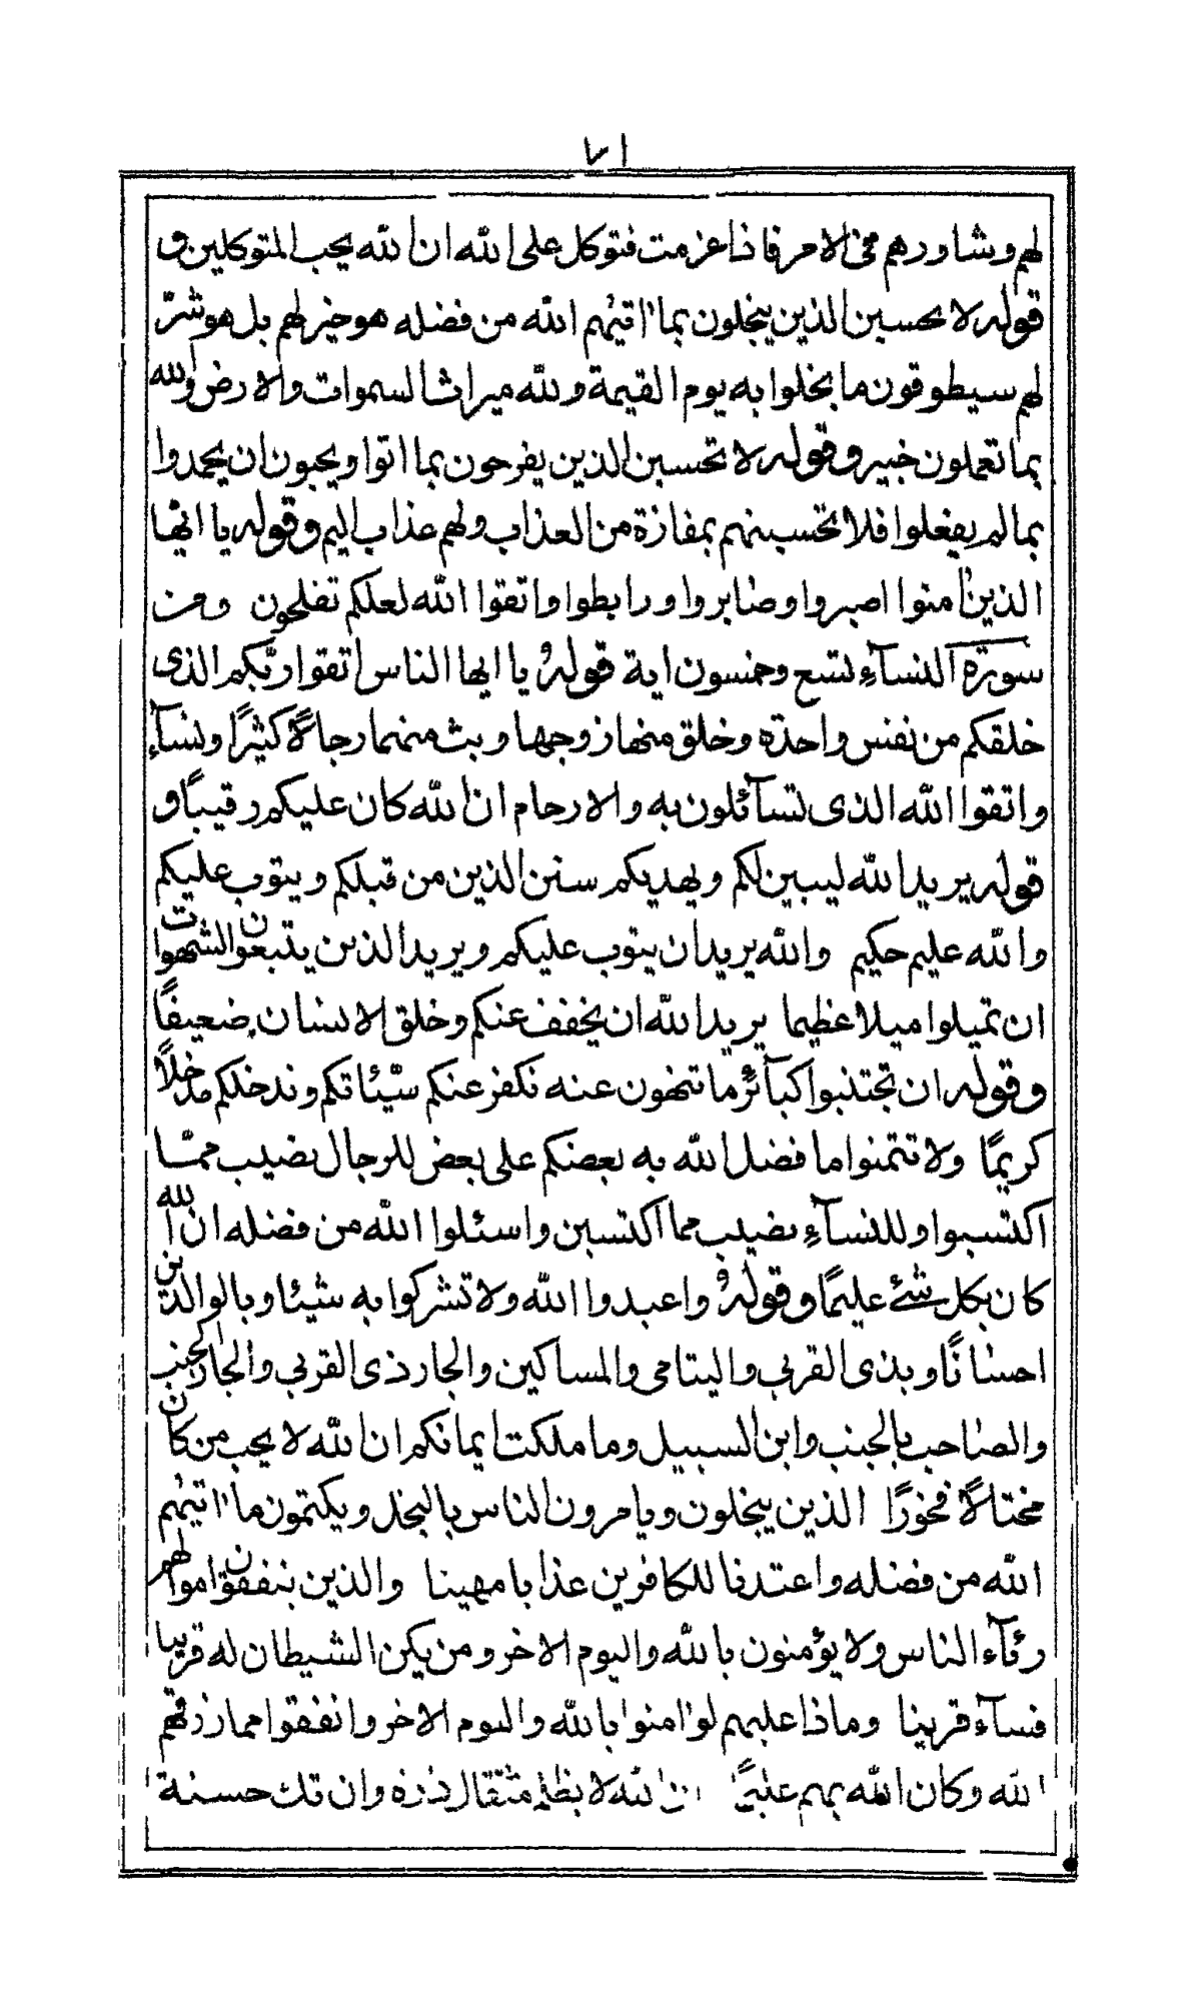 ٧١
لهم وشاورهم فى الامر فاذا عزمت فتوكل على الله ان الله يحب المتوكلين و
قوله لا يحسبن الذين يبخلون بما اتيٰهم الله من فضله هو خير لهم بل هو شرّ
لهم سيطوقون ما بخلوا به يوم القيمة ولله ميراث السموات والارض والله
بما تعملون خبير وقوله لا تحسبن الذين يفرحون بما اتوا ويحبون ان يحمدوا
بما لم يفعلوا فلا تحسبنهم بمفازة من العذاب ولهم عذاب اليم وقوله يا ايّها
الذين امنوا اصبروا وصابروا ورابطوا واتقوا الله لعلكم تفلحون ومن
سورة النسآء تسع وخمسون اية قوله يا ايها الناس اتقوا ربّكم الذى
خلقكم من نفس واحدة وخلق منها زوجها وبث منهما رجالًا كثيرًا ونسآء
واتقوا الله الذى تسآئلون به والارحام ان الله كان عليكم رقيبًا و
قوله يريد الله ليبين لكم ويهديكم سنن الذين من قبلكم ويتوب عليكم
والله عليم حكيم والله يريد ان يتوب عليكم ويريد الذين يتبعون الشهوات
ان تميلوا ميلا عظيما يريد الله ان يخفف عنكم وخلق الانسان ضعيفًا
وقوله ان تجتنبوا كبآئر ما تنهون عنه نكفر عنكم سيّئاتكم وندخلكم مدخلًا
كريمًا ولا تتمنوا ما فضل الله به بعضكم على بعض للرجال نصيب ممّا
اكتسبوا وللنسآء نصيب مما اكتسبن واسئلوا الله من فضله ان الله
كان بكل شئ عليمًا وقوله واعبدوا الله ولا تشركوا به شيئا وبالوالدين
احسانًا وبذى القربى واليتامى والمساكين والجار ذى القربى والجار الجنب
والصاحب بالجنب وابن السبيل وما ملكت ايمانكم ان الله لا يحب من كان
مختالًا فخورًا الذين يبخلون ويامرون الناس بالبخل ويكتمون ما اتيٰهم
الله من فضله واعتدنا للكافرين عذابا مهينا والذين ينفقون اموالهم
رئآء الناس ولا يؤمنون بالله واليوم الاخر ومن يكن الشيطان له قرينا
فسآء قرينا وماذا عليهم لو امنوا بالله واليوم الاخر وانفقوا مما رزقهم
الله وكان الله بهم عليمًا ان الله لا يظلم مثقال ذرة وان تك حسنة